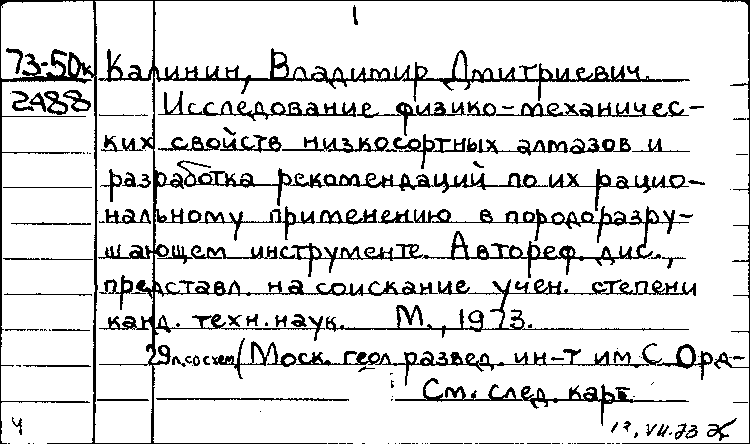 1
73-50к Калинин, Владимир Дмитриевич.
2488 Исследование физико-механичес-
ких свойств низкосортных алмазов и
разработка рекомендаций по их рацио-
нальному применению в породоразру-
шающем инструменте. Автореф. дис.,
представл. на соискание учен. степени
канд. техн. наук. М., 1973.
29 л. со схем. (Моск. геол. развед. ин-т им. С. Орд-
См. след. карт.
4